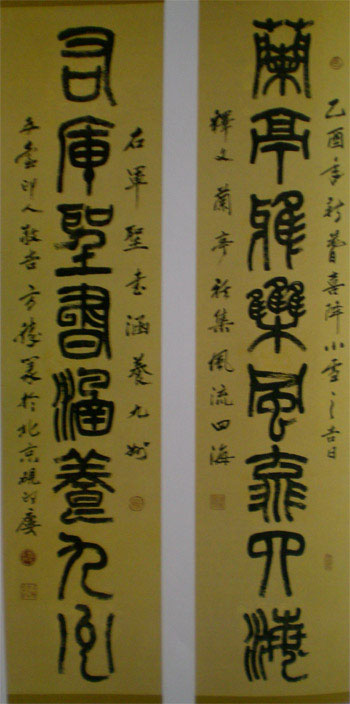 乙酉年新春喜降小雪之吉日
蘭亭雅集風流四海
釋文蘭亭雅集風流四海
右軍聖書涵養九州
右軍聖書涵養九州
印人敬書於北京